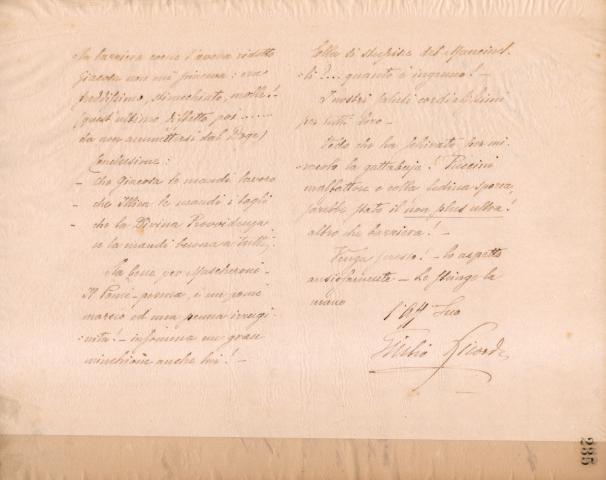 la barriera come l'aveva ridotta
Giacosa non mi piaceva: era
freddissima, stiracchiata, molle!
(quest'ultimo difetto poi ......
da non ammettersi dal Doge)
Conclusione:
- che Giacosa le mandi lavoro
- che Illica le mandi i tagli
- che la Divina Provvidenza
ce la mandi buona a tutti.
Va bene per Mascheroni -
Il Pomè-penna, è un pomè
marcio ed una penna
- insomma un gran
minchione anche lui! -
Ella si stupisce del Mancinel-
li?... quanto è ingenuo! -
I nostri saluti cordialissimi
per tutti loro -
Vedo che ha
la gattabuja! Puccini
malfattore e colla tudina sporca,
sarebbe stato il non plus ultra!
altro che barriera! -
Venga presto! - lo aspetto
ansiosamente - Le stringo la
mano
l'aff Suo
Giulio Ricordi
285